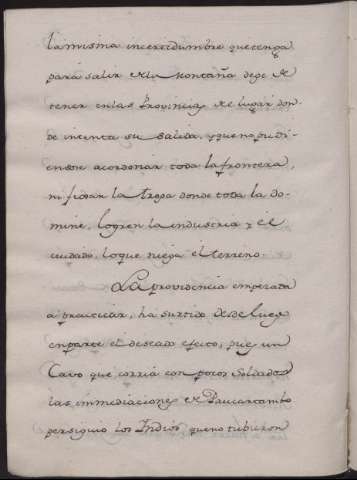 la misma incertidumbre que tenga
para salir de la Montaña dege de
tener en las Provincias de lugar don-
de intenta su salida, y que no pudi-
endose acordonar toda la frontera,
ni fixar la tropa donde toda la do-
mine, logren la industria y el
cuidado, lo que niega el terreno.
La providencia empezada
á practicar, ha surtido desde luego
en parte el deseado efecto, pues un
Cavo que corria con pocos Soldados
las immediaciones de Paucartambo
persiguio los Indios que no tubieron